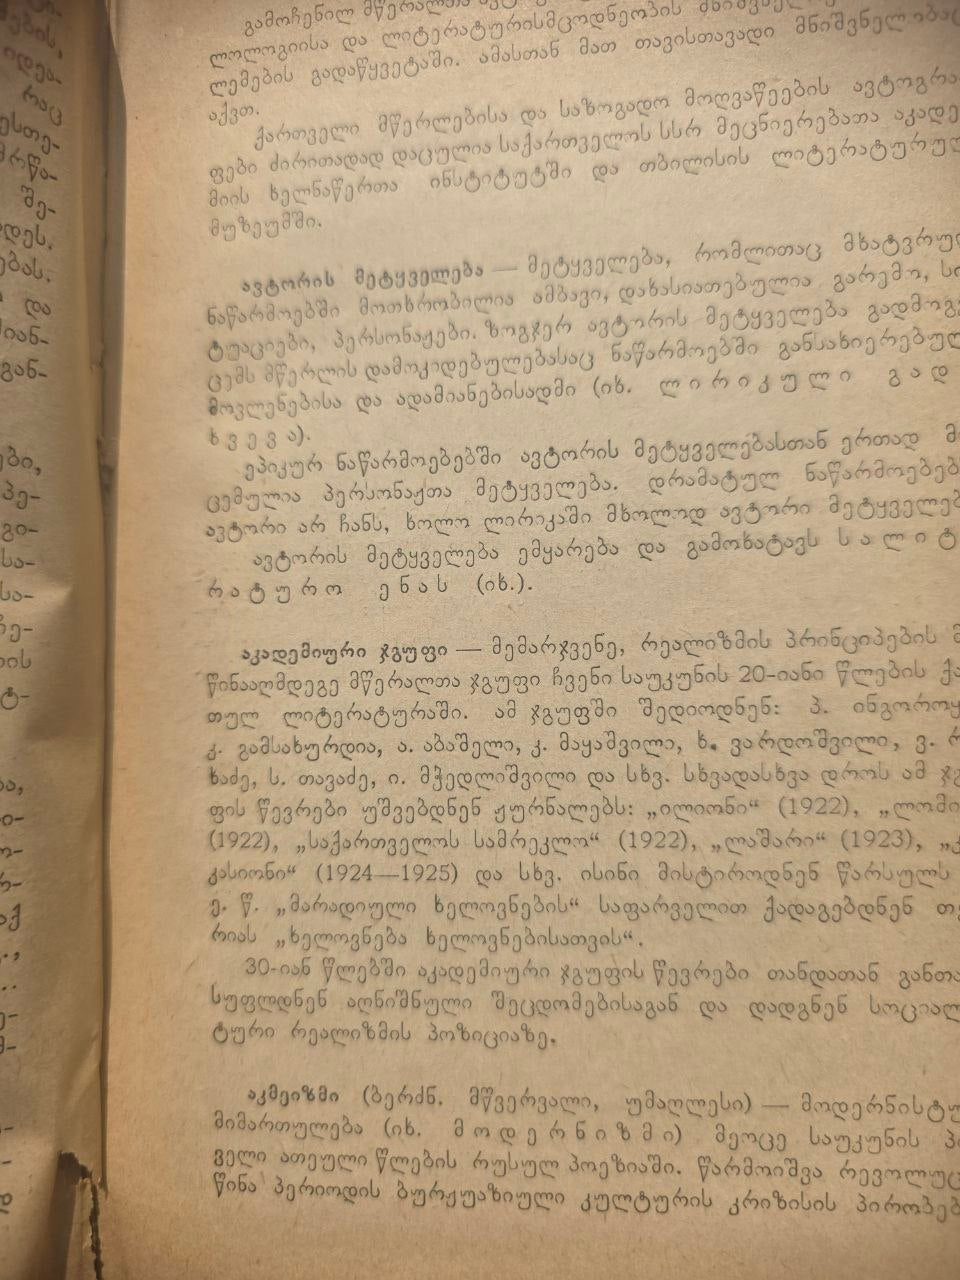 ება,
იდეა-
რაც
ესთე-
შე-
დეს.
ებას.
და
მიან-
გან-
ები,
პე-
გი-
სა-
სა-
ტ-
გამოჩენილ მწერალთა
ლოლოგიისა და ლიტერატურისმცოდნეობის მნიშვნელ
ლემების გადაწყვეტაში. ამასთან მათ თავისთავადი მნიშვნელობაც
აქვთ.
ქართველი მწერლებისა და საზოგადო მოღვაწეების ავტოგრა-
ფები ძირითადად დაცულია საქართველოს სსრ მეცნიერებათა აკადე-
მიის ხელნაწერთა ინსტიტუტში და თბილისის ლიტერატურულ
მუზეუმში.
ავტორის მეტყველება — მეტყველება, რომლითაც მხატვრულ
ნაწარმოებში მოთხრობილია ამბავი, დახასიათებულია გარემო, სი
ტუაციები, პერსონაჟები. ზოგჯერ ავტორის მეტყველება გადმოგვ
ცემს მწერლის დამოკიდებულებასაც ნაწარმოებში განსახიერებულ
მოვლენებისა და ადამიანებისადმი (იხ. ლ ი რ ი კ უ ლ ი გ ა დ
ხ ვ ე ვ ა).
ეპიკურ ნაწარმოებებში ავტორის მეტყველებასთან ერთად მ
ცემულია პერსონაჟთა მეტყველება. დრამატულ ნაწარმოებებ
ავტორი არ ჩანს, ხოლო ლირიკაში მხოლოდ ავტორი მეტყველებ
ავტორის მეტყველება ემყარება და გამოხატავს ს ა ლ ი ტ
რ ა ტ უ რ ო ე ნ ა ს (იხ.).
აკადემიური ჯგუფი — მემარჯვენე, რეალიზმის პრინციპების მ
წინააღმდეგე მწერალთა ჯგუფი ჩვენი საუკუნის 20-იანი წლების ქა
თულ ლიტერატურაში. ამ ჯგუფში შედიოდნენ: პ. ინგოროყ
კ. გამსახურდია, ა. აბაშელი, კ. მაყაშვილი, ხ. ვარდოშვილი, ვ. რ
ხაძე, ს. თავაძე, ი. მჭედლიშვილი და სხვ. სხვადასხვა დროს ამ ჯგ
ფის წევრები უშვებდნენ ჟურნალებს: „ილიონი“ (1922), „ლომი
(1922), „საქართველოს სამრეკლო“ (1922), „ლაშარი“ (1923), „კ
კასიონი“ (1924—1925) და სხვ. ისინი მისტიროდნენ წარსულს
ე. წ. „მარადიული ხელოვნების“ საფარველით ქადაგებდნენ თე
რიას „ხელოვნება ხელოვნებისათვის“.
30-იან წლებში აკადემიური ჯგუფის წევრები თანდათან განთა
სუფლდნენ აღნიშნული შეცდომებისაგან და დადგნენ სოციალ
ტური რეალიზმის პოზიციაზე.
აკმეიზმი (ბერძნ. მწვერვალი, უმაღლესი) — მოდერნისტუ
მიმართულება (იხ. მ ო დ ე რ ნ ი ზ მ ი) მეოცე საუკუნის პი
ველი ათეული წლების რუსულ პოეზიაში. წარმოიშვა რევოლუც
წინა პერიოდის ბურჟუაზიული კულტურის კრიზისის პირობებ